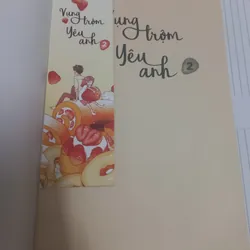 Vụng trộm
Yêu anh 2
Vụng
trộm
Yêu
anh 2